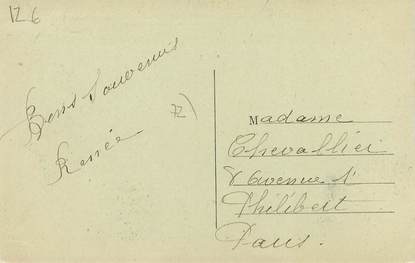 126
Bons Souvenirs
Renée
72)
Madame
Chevallier
Avenue St
Philibert
Paris.